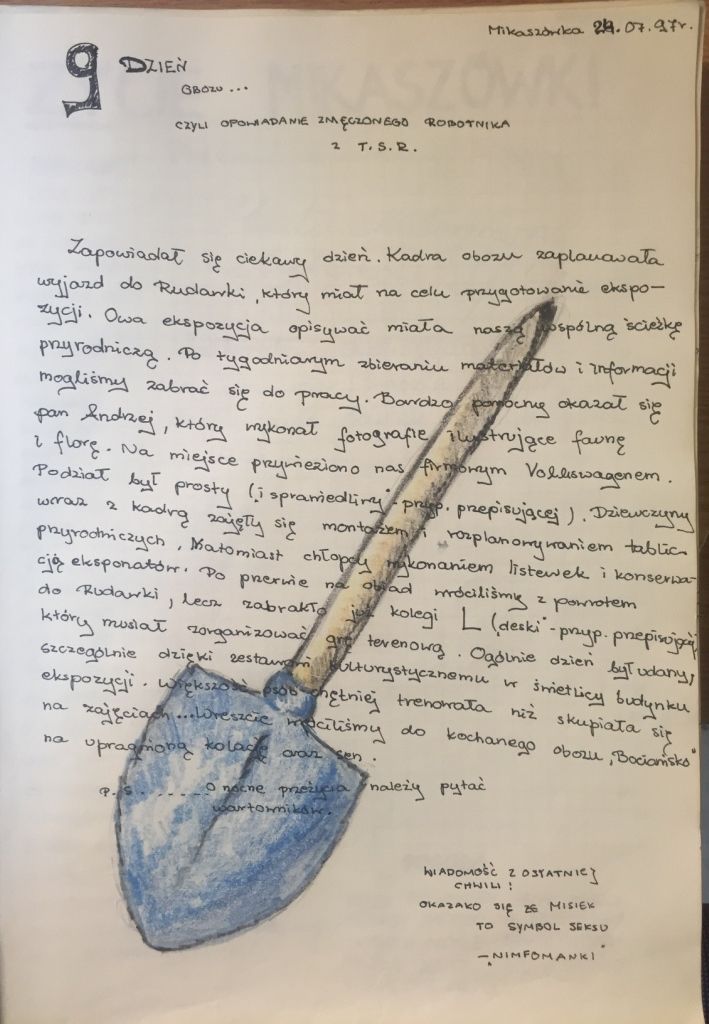 Mikaszówka 29.07.97r.
9 DZIEŃ
OBOZU ...
CZYLI OPOWIADANIE ZMĘCZONEGO ROBOTNIKA
Z T.S.R.
Zapowiadał się ciekawy dzień. Kadra obozu zaplanowała
wyjazd do Rudawki, który miał na celu przygotowanie ekspo-
zycji. Owa ekspozycja opisywać miała naszą wspólną ścieżkę
przyrodniczą. Po tygodniowym zbieraniu materiałów i informacji
mogliśmy zabrać się do pracy. Bardzo pomocny okazał się
pan Andrzej, który wykonał fotografie ilustrujące faunę
i florę. Na miejsce przywieziono nas firmowym Volkswagenem.
Podział był prosty (i sprawiedliwy - przyp. przepisującej). Dziewczyny
wraz z kadrą zajęły się montażem i rozplanowywaniem tablic
przyrodniczych, Natomiast chłopcy wykonaniem listewek i konserwa-
cją eksponatów. Po przerwie na obiad wróciliśmy z powrotem
do Rudawki, lecz zabrakło już kolegi L ("deski" - przyp. przepisującej)
który musiał zorganizować grę terenową. Ogólnie dzień był udany,
szczególnie dzięki zestawom kulturystycznemu w świetlicy budynku
ekspozycji. Większość osób chętniej trenowała niż skupiała się
na zajęciach...Wreszcie wróciliśmy do kochanego obozu,
na upragnioną kolację oraz sen.
P.S. ...... O nocne przeżycia należy pytać
wartowników.
WIADOMOŚĆ Z OSTATNIEJ
CHWILI!
OKAZAŁO SIĘ ŻE MISIEK
TO SYMBOL SEKSU
- "NIMFOMANKI"